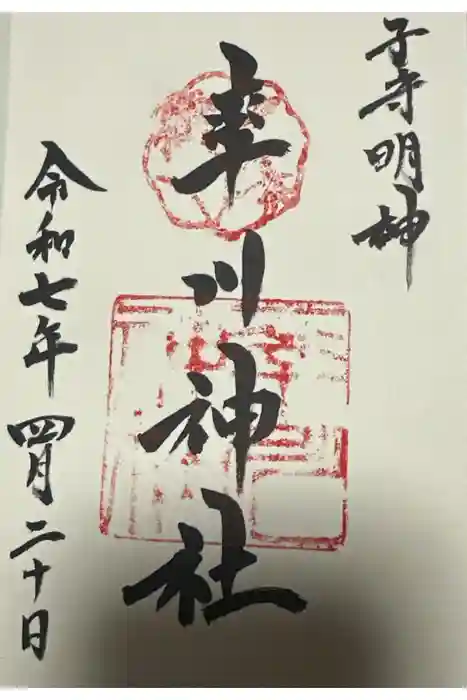 子守明神
率川神社
令和七年四月二十日